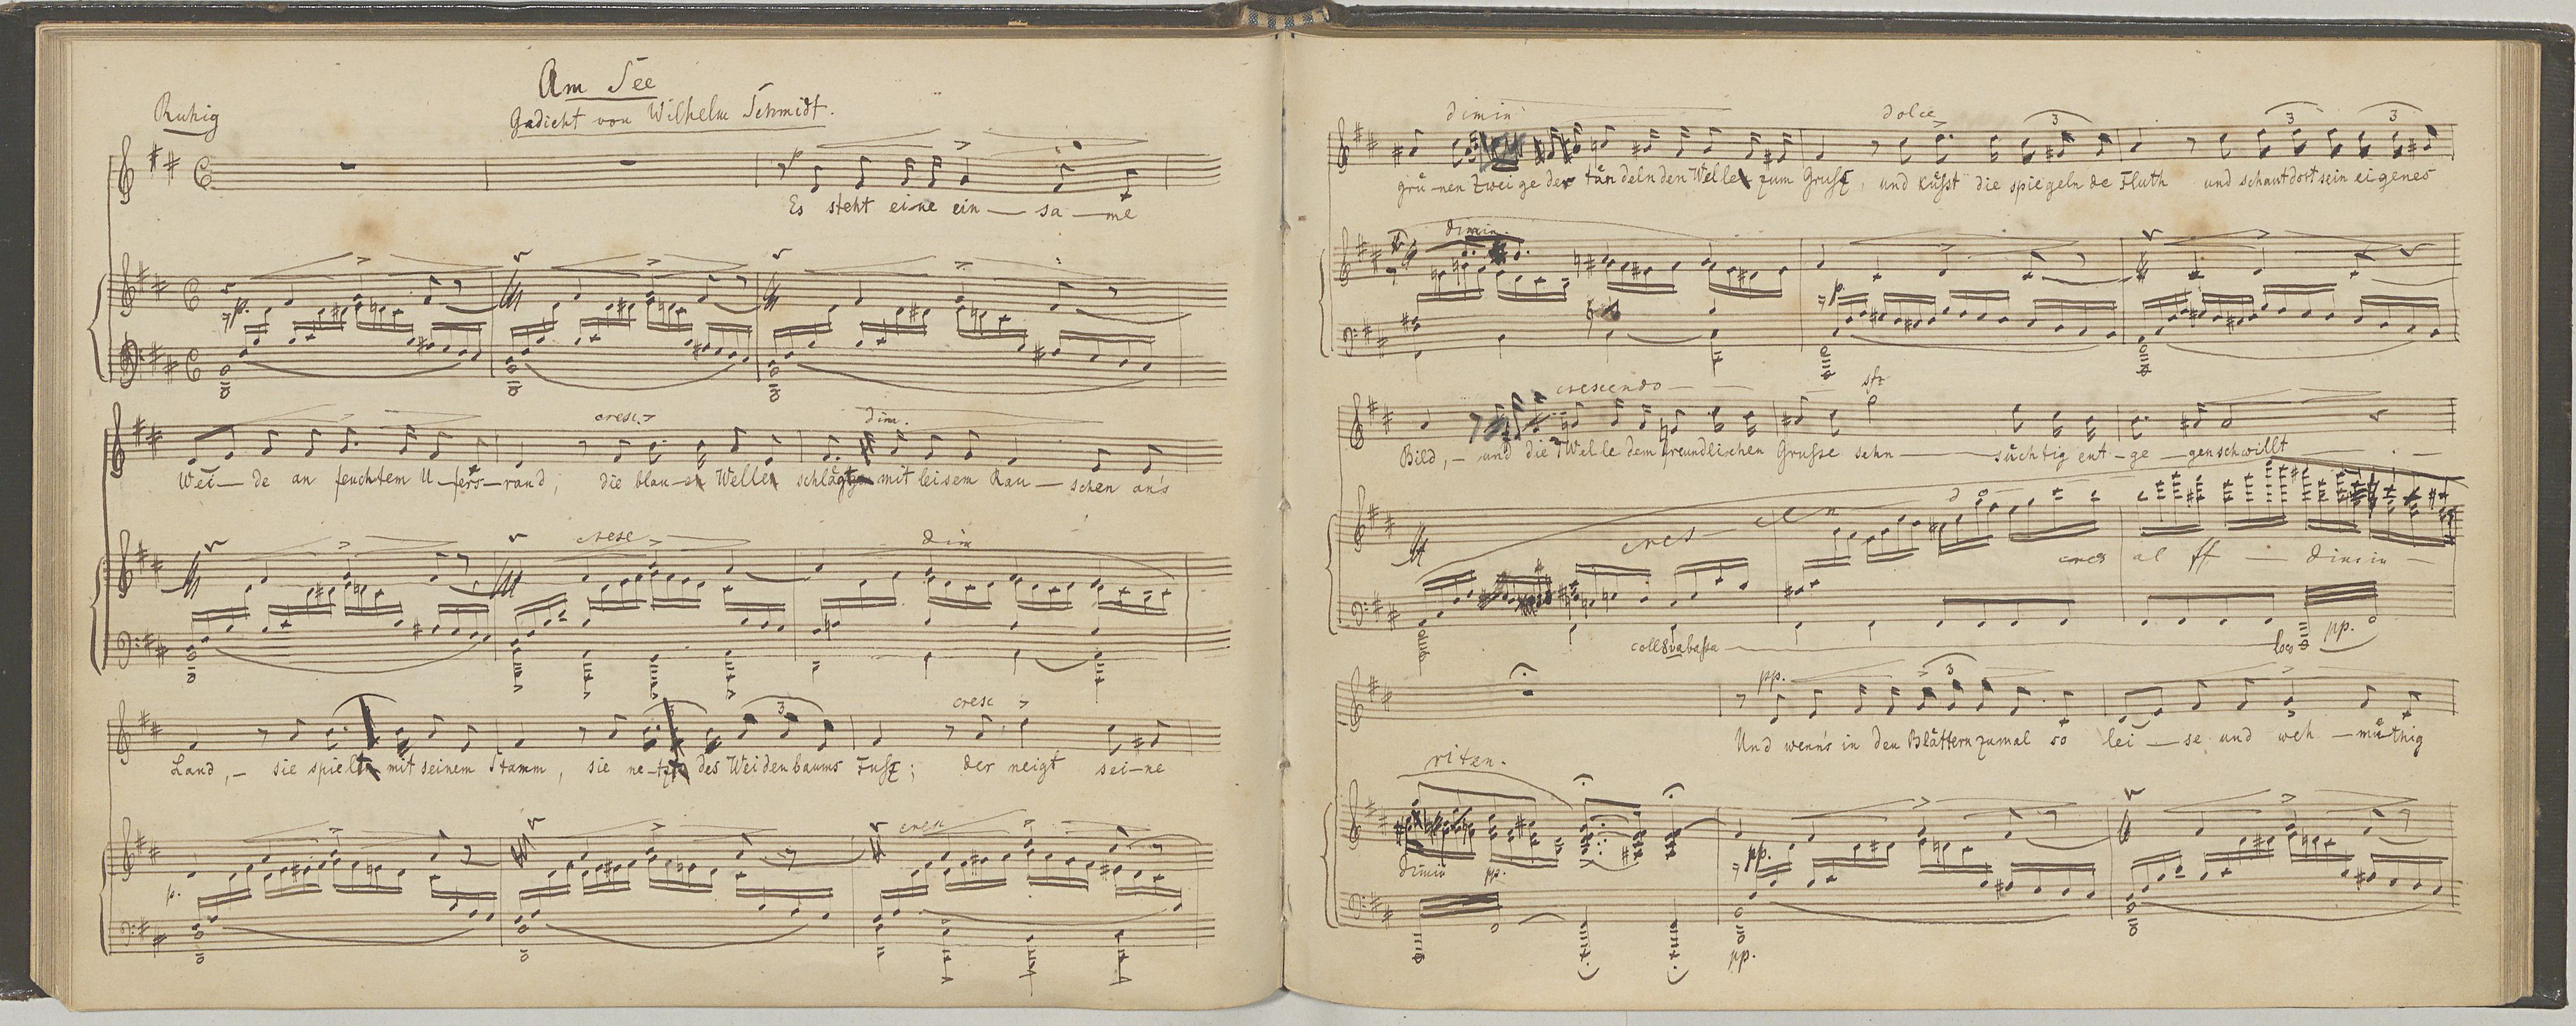 Am See
Ruhig
Gedicht von Wilhelm Schmidt.
p
Es steht eine ein — sa — me
p.
cresc. dim.
Wei — de an feuchtem U — fers — rand, die blau — en Wellen mit leisem Rau — schen an's
cresc dim
3 3 cresc
Land, — sie mit seinem Stamm, sie des Weidenbaums Fuß; der neigt sei — ne
cresc
p.
dimin dolce 3 3 3
grü — nen Zweige der tändelnden Welle zum Gruß, und küßt die spiegelnde Fluth und schaut dort sein eigenes
dimin.
p.
crescendo — sfz
Bild, — und die Welle dem freundlichen Grusse sehn — süchtig ent — ge — genschwillt
cres — cen — do
cres al ff — dimin —
coll 8va bassa — loco pp.
pp. 3
Und wenn's in den Blättern zumal so lei — se und weh — müthig
riten.
dimin pp. pp.
pp.